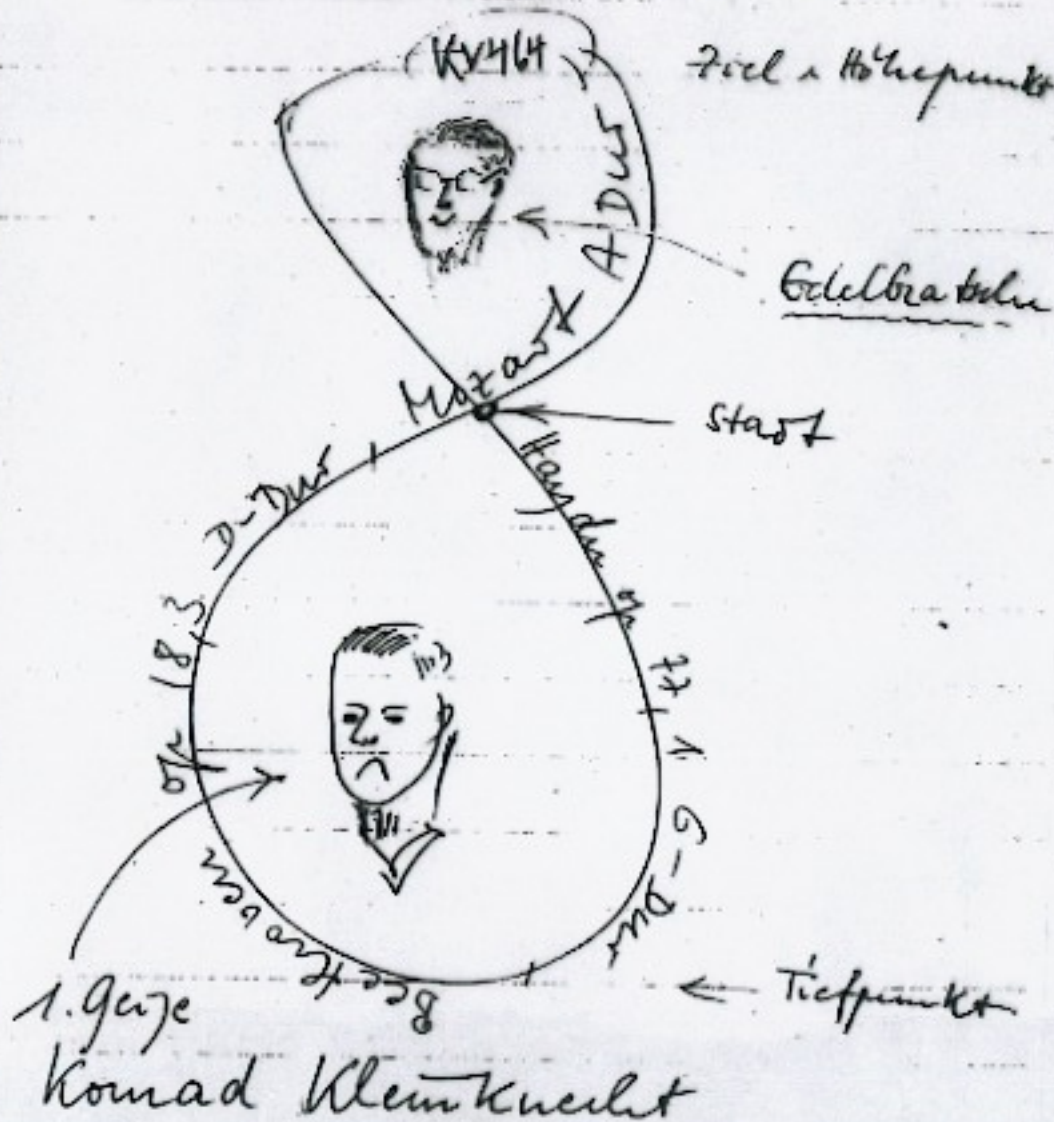 KV 464
Ziel u Höhepunkt
A Dur
Edelbratsche
Mozart
Start
Haydn op 77 1 G-Dur
D-Dur
op 18,3
Beethoven
Tiefpunkt
1. Geige
Konrad Kleinknecht